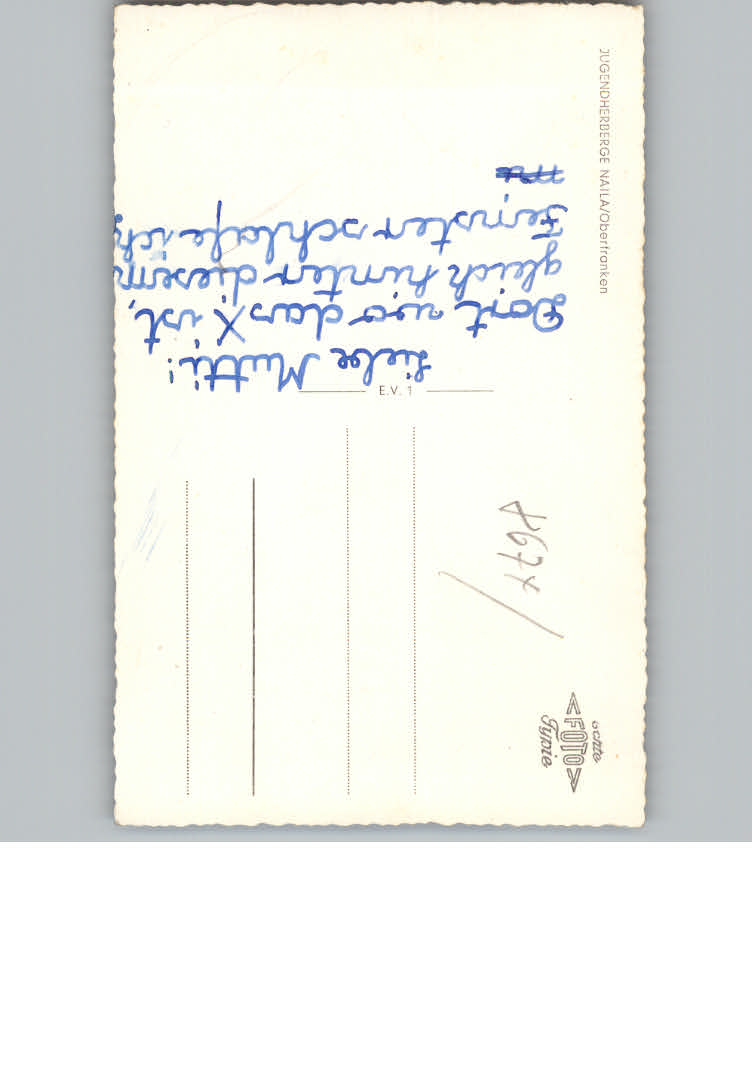 JUGENDHERBERGE NAILA/Oberfranken
Liebe Mutti!
Dort wo das X ist,
gleich hinter diesem
Fenster schlafe ich,
E.V. 1
echte
<FOTO>
Typie